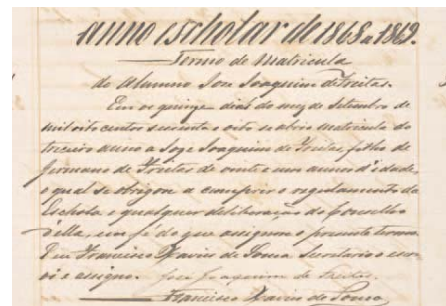 anno escholar de 1868 a 1869.
Termo de Matricula
do Alumno Jose Joaquim de Freitas.
Em os quinze dias do mez de Setembro de
mil oito centos sessenta e oito se abrio matricula do
terceiro anno a Joze Joaquim de Freitas, filho de
Germano de Freitas de vinte e um annos d'idade,
o qual se obrigou a cumprir o regulamento da
Eschola e qualquer deliberação do conselho
della, em fé do que assignou o presente termo.
Eu Francisco Xavier de Souza Secretario o escre
vi e assigno. Joze Joaquim de Freitas.
Francisco Xavier de Souza